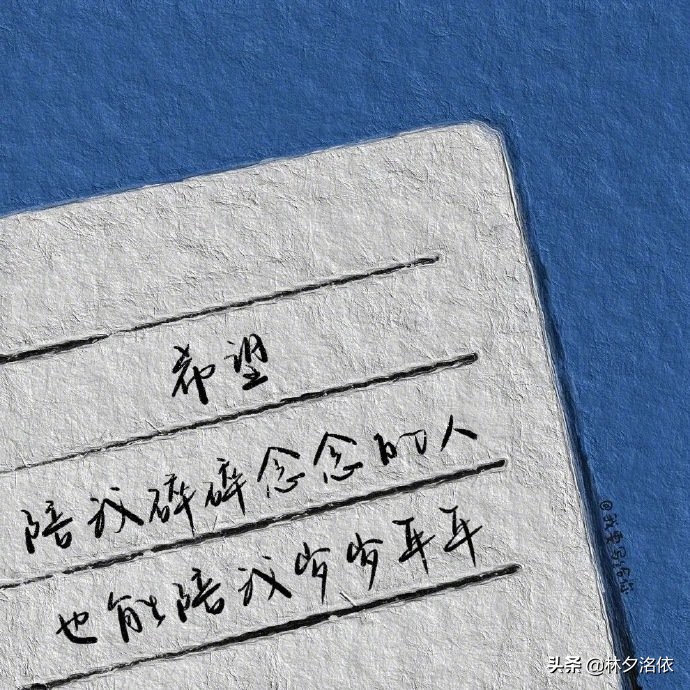 希望
陪我碎碎念念的人
也能陪我岁岁年年
头条 @林夕洺依